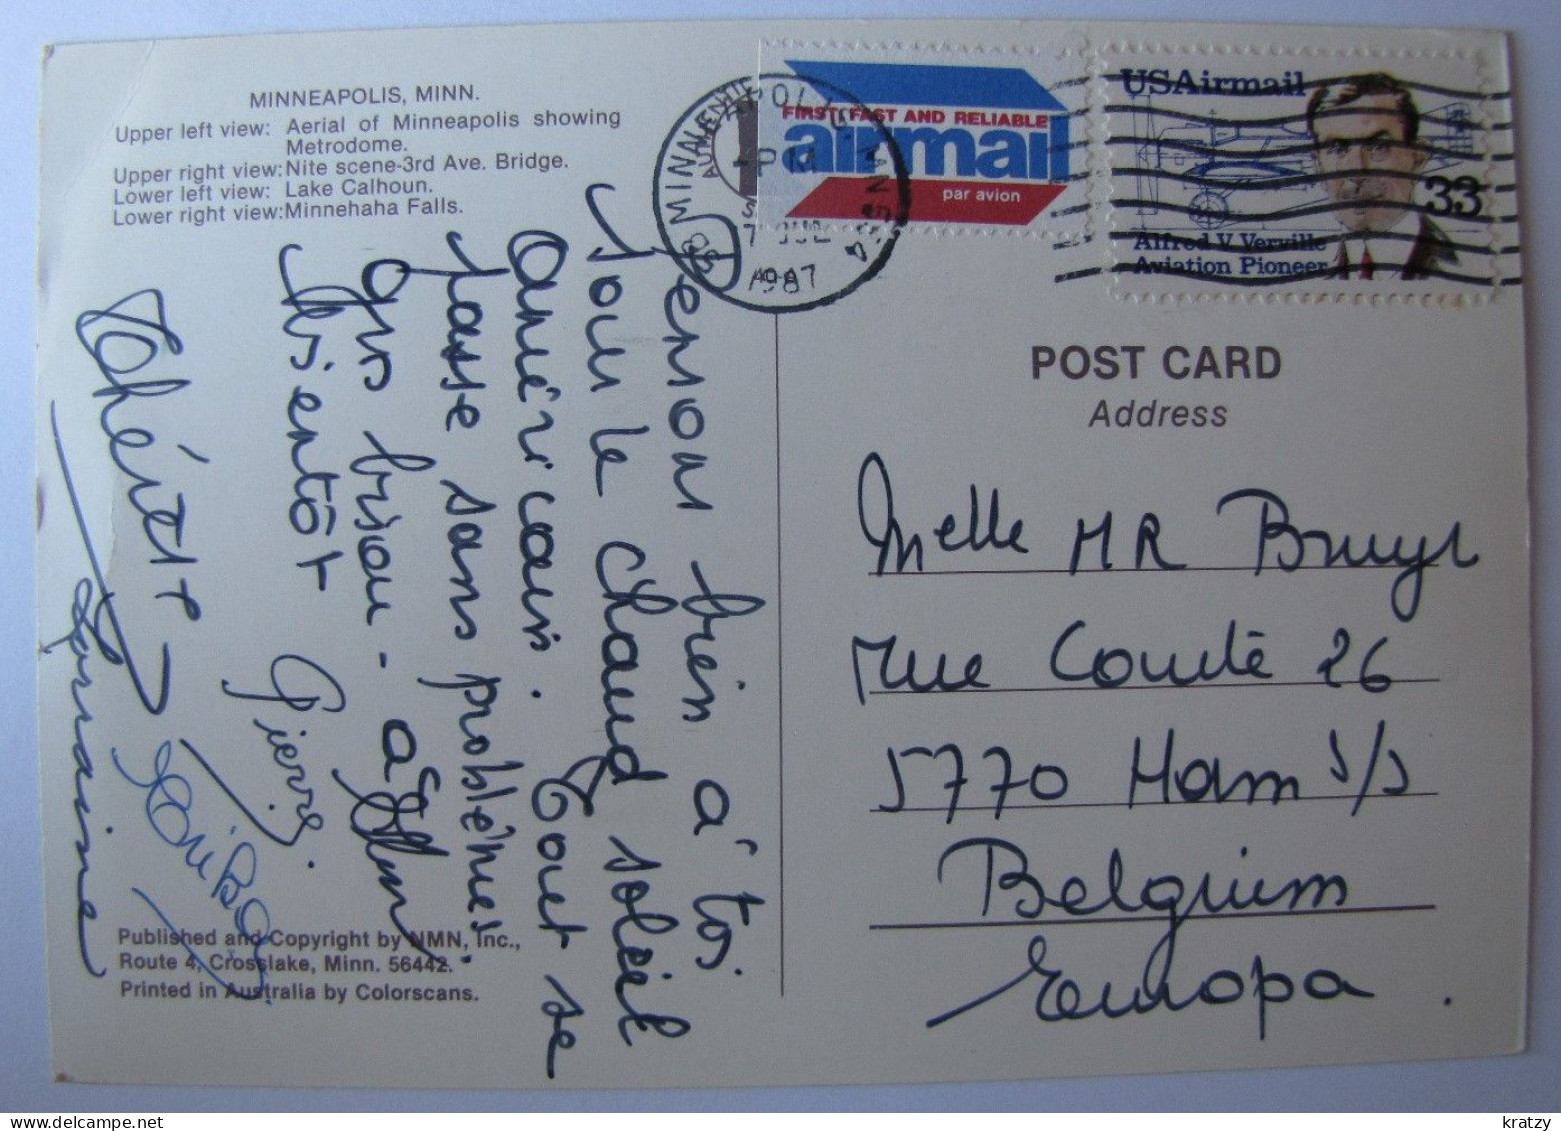 MINNEAPOLIS, MINN.
Upper left view: Aerial of Minneapolis showing
Metrodome.
Upper right view: Nite scene-3rd Ave. Bridge.
Lower left view: Lake Calhoun.
Lower right view: Minnehaha Falls.
FIRST, FAST AND RELIABLE
airmail
par avion
MINNEAPOLIS MN
PM
7 JUL
1987
USAirmail
33
Alfred V. Verville
Aviation Pioneer
Pensons bien à toi
sous le chaud soleil
américain. Tout se
passe sans problèmes.
Gros bisou - à
Bientôt
Pierre.
Lorraine
POST CARD
Address
Melle MR Bruyr
rue Comte 26
5770 Ham s/s
Belgium
Europa.
Published and Copyright by NMN, Inc.,
Route 4, Crosslake, Minn. 56442.
Printed in Australia by Colorscans.
delcampe.net
kratzy